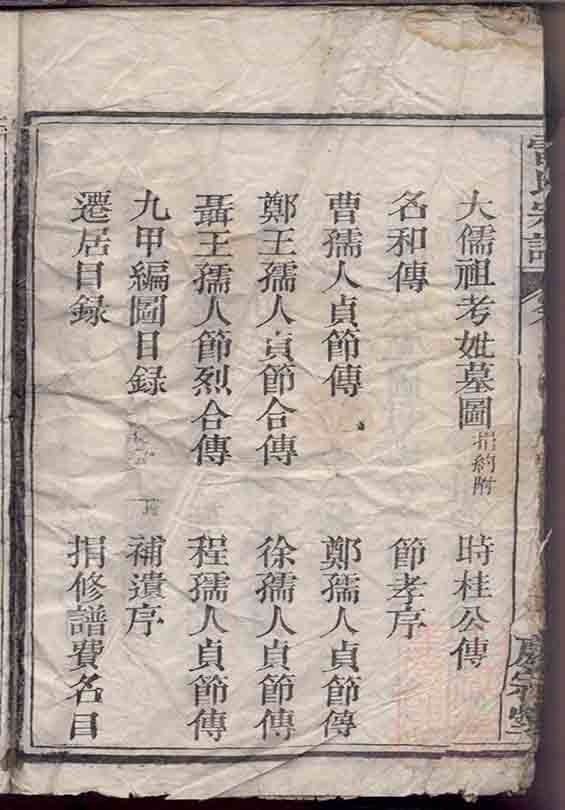 大儒祖考妣墓圖 捐約附 時桂公傳
名和傳 節孝序
曹孺人貞節傳 鄭孺人貞節傳
鄭王孺人貞節合傳 徐孺人貞節傳
聶王孺人節烈合傳 程孺人貞節傳
九甲編圖目录 補遺序
遷居目录 捐修譜費名目